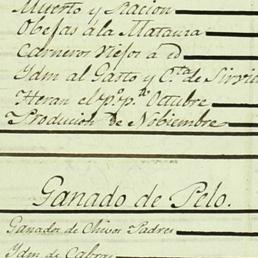 Muerto y Racion
Obejas á la Matanza
Carneros viejos a id
Ydm al Gasto y C.ta de Sirvi
Heran el p.o p.te Octubre
Producion de Nobiembre
Ganado de Pelo.
Ganador de Chivos Padres
Ydm de Cabras